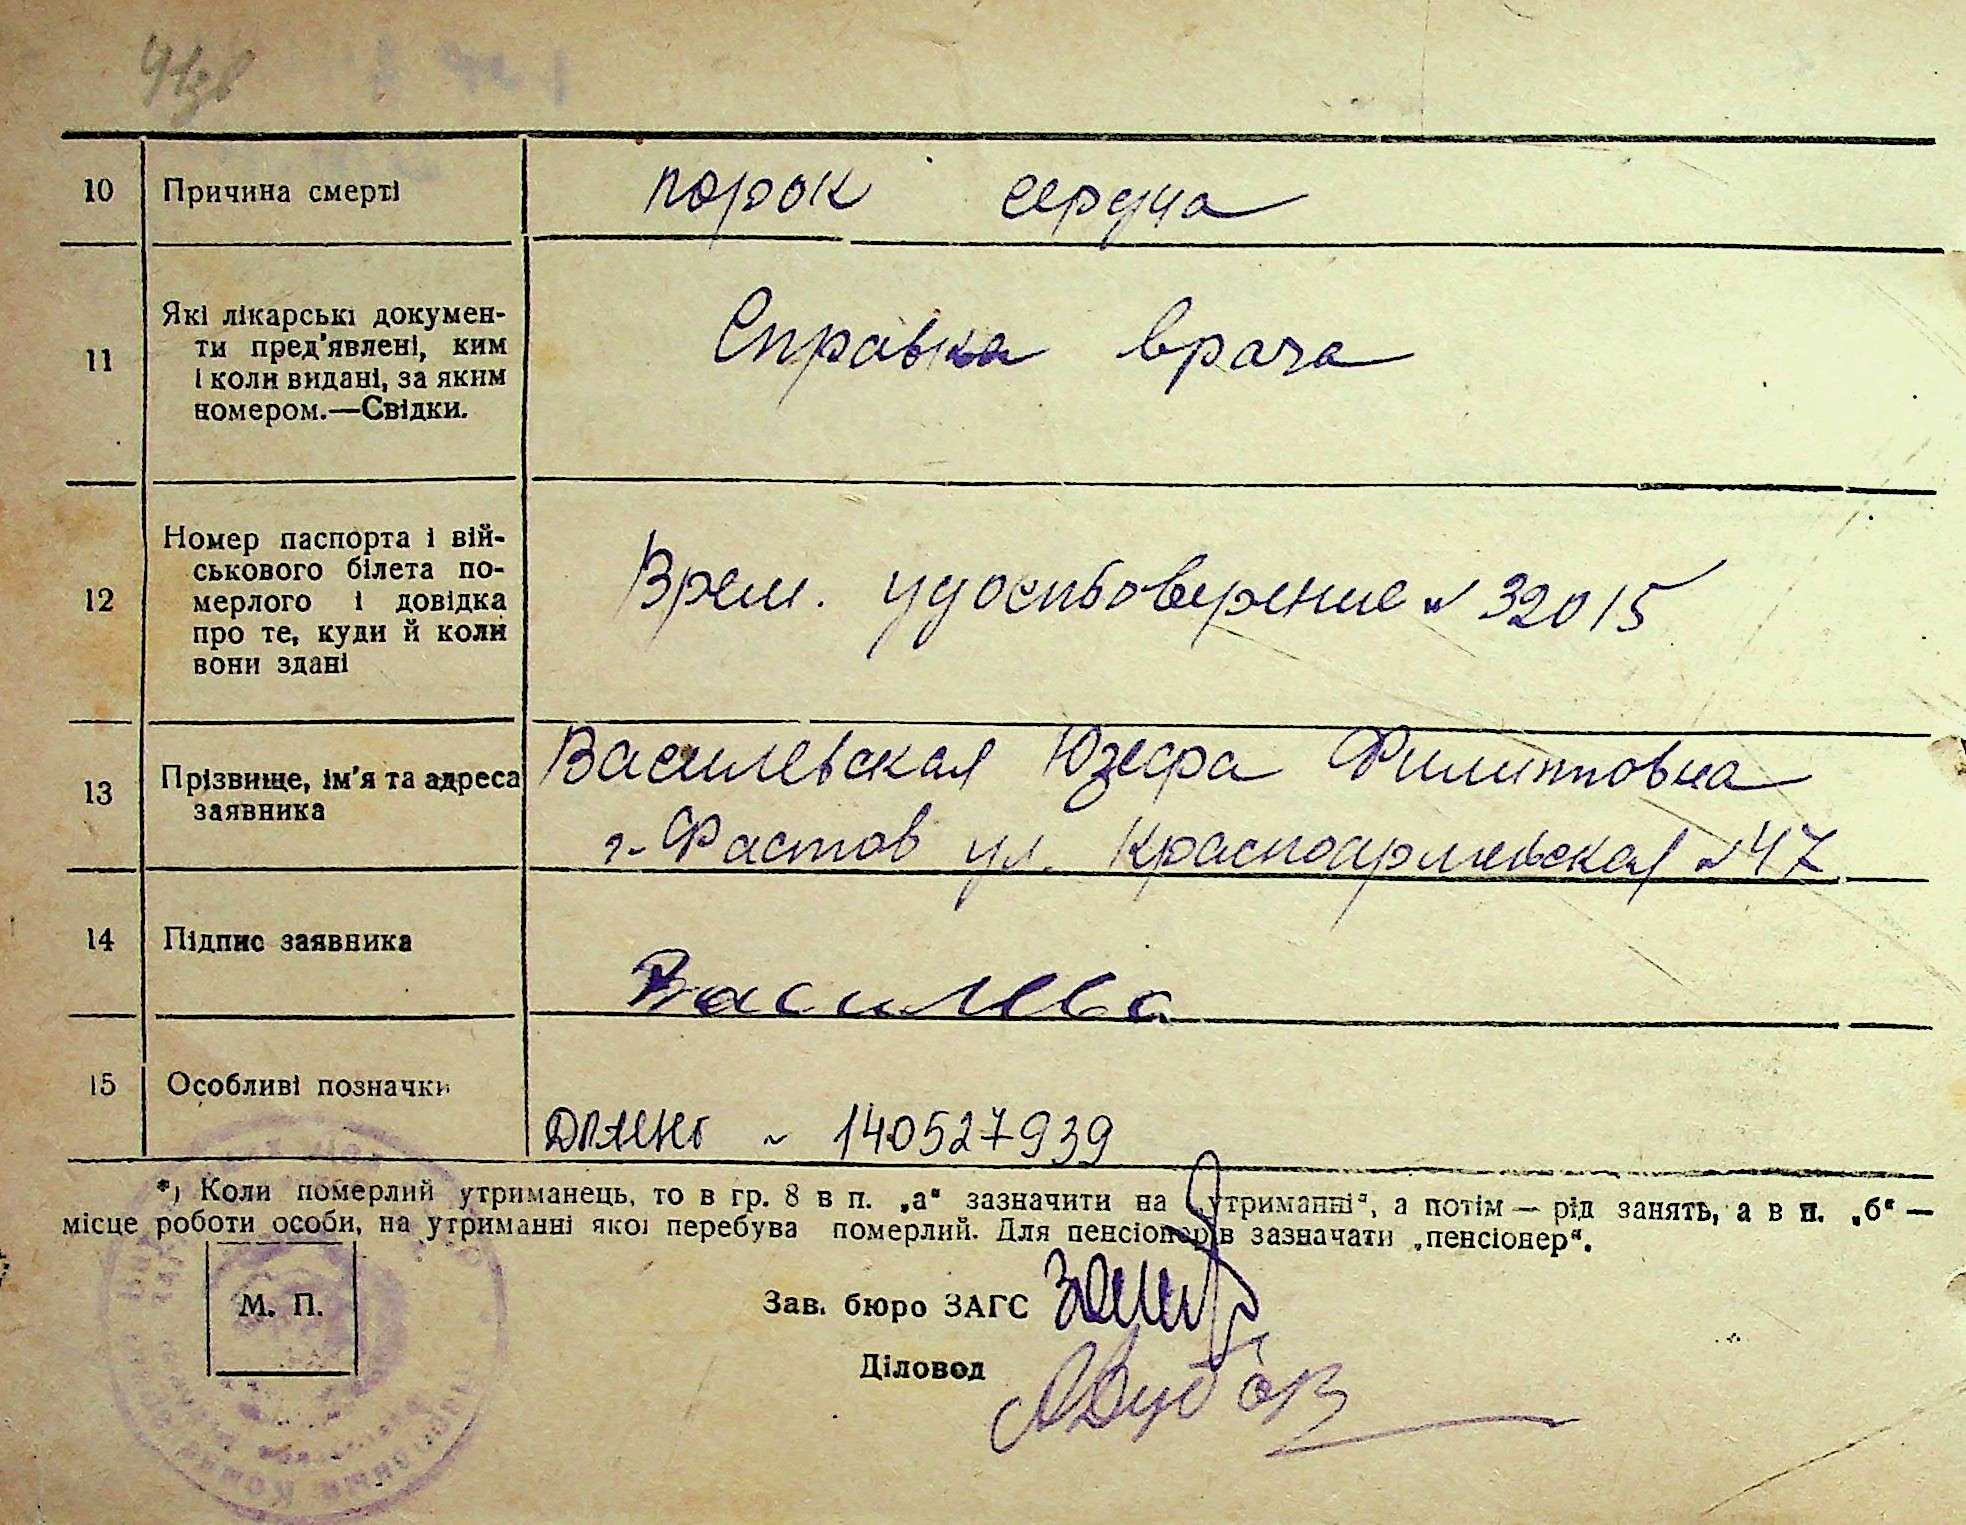 10 Причина смерті порок сердца
11 Які лікарські докумен-
ти пред'явлені, ким
і коли видані, за яким
номером.—Свідки.
Справка врача
12 Номер паспорта і вій-
ськового білета по-
мерлого і довідка
про те, куди й коли
вони здані
Врем. удостоверение № 32015
13 Прізвище, ім'я та адреса
заявника
Василевская Юзефа Филипповна
г. Фастов ул. Красноармейская № 47
14 Підпис заявника
Василева
15 Особливі позначки
№ 140527939
*) Коли померлий утриманець, то в гр. 8 в п. „а" зазначити на „утриманні", а потім — рід занять, а в п. „б" —
місце роботи особи, на утриманні якої перебува померлий. Для пенсіонерів зазначати „пенсіонер".
М. П.
Зав. бюро ЗАГС
Діловод